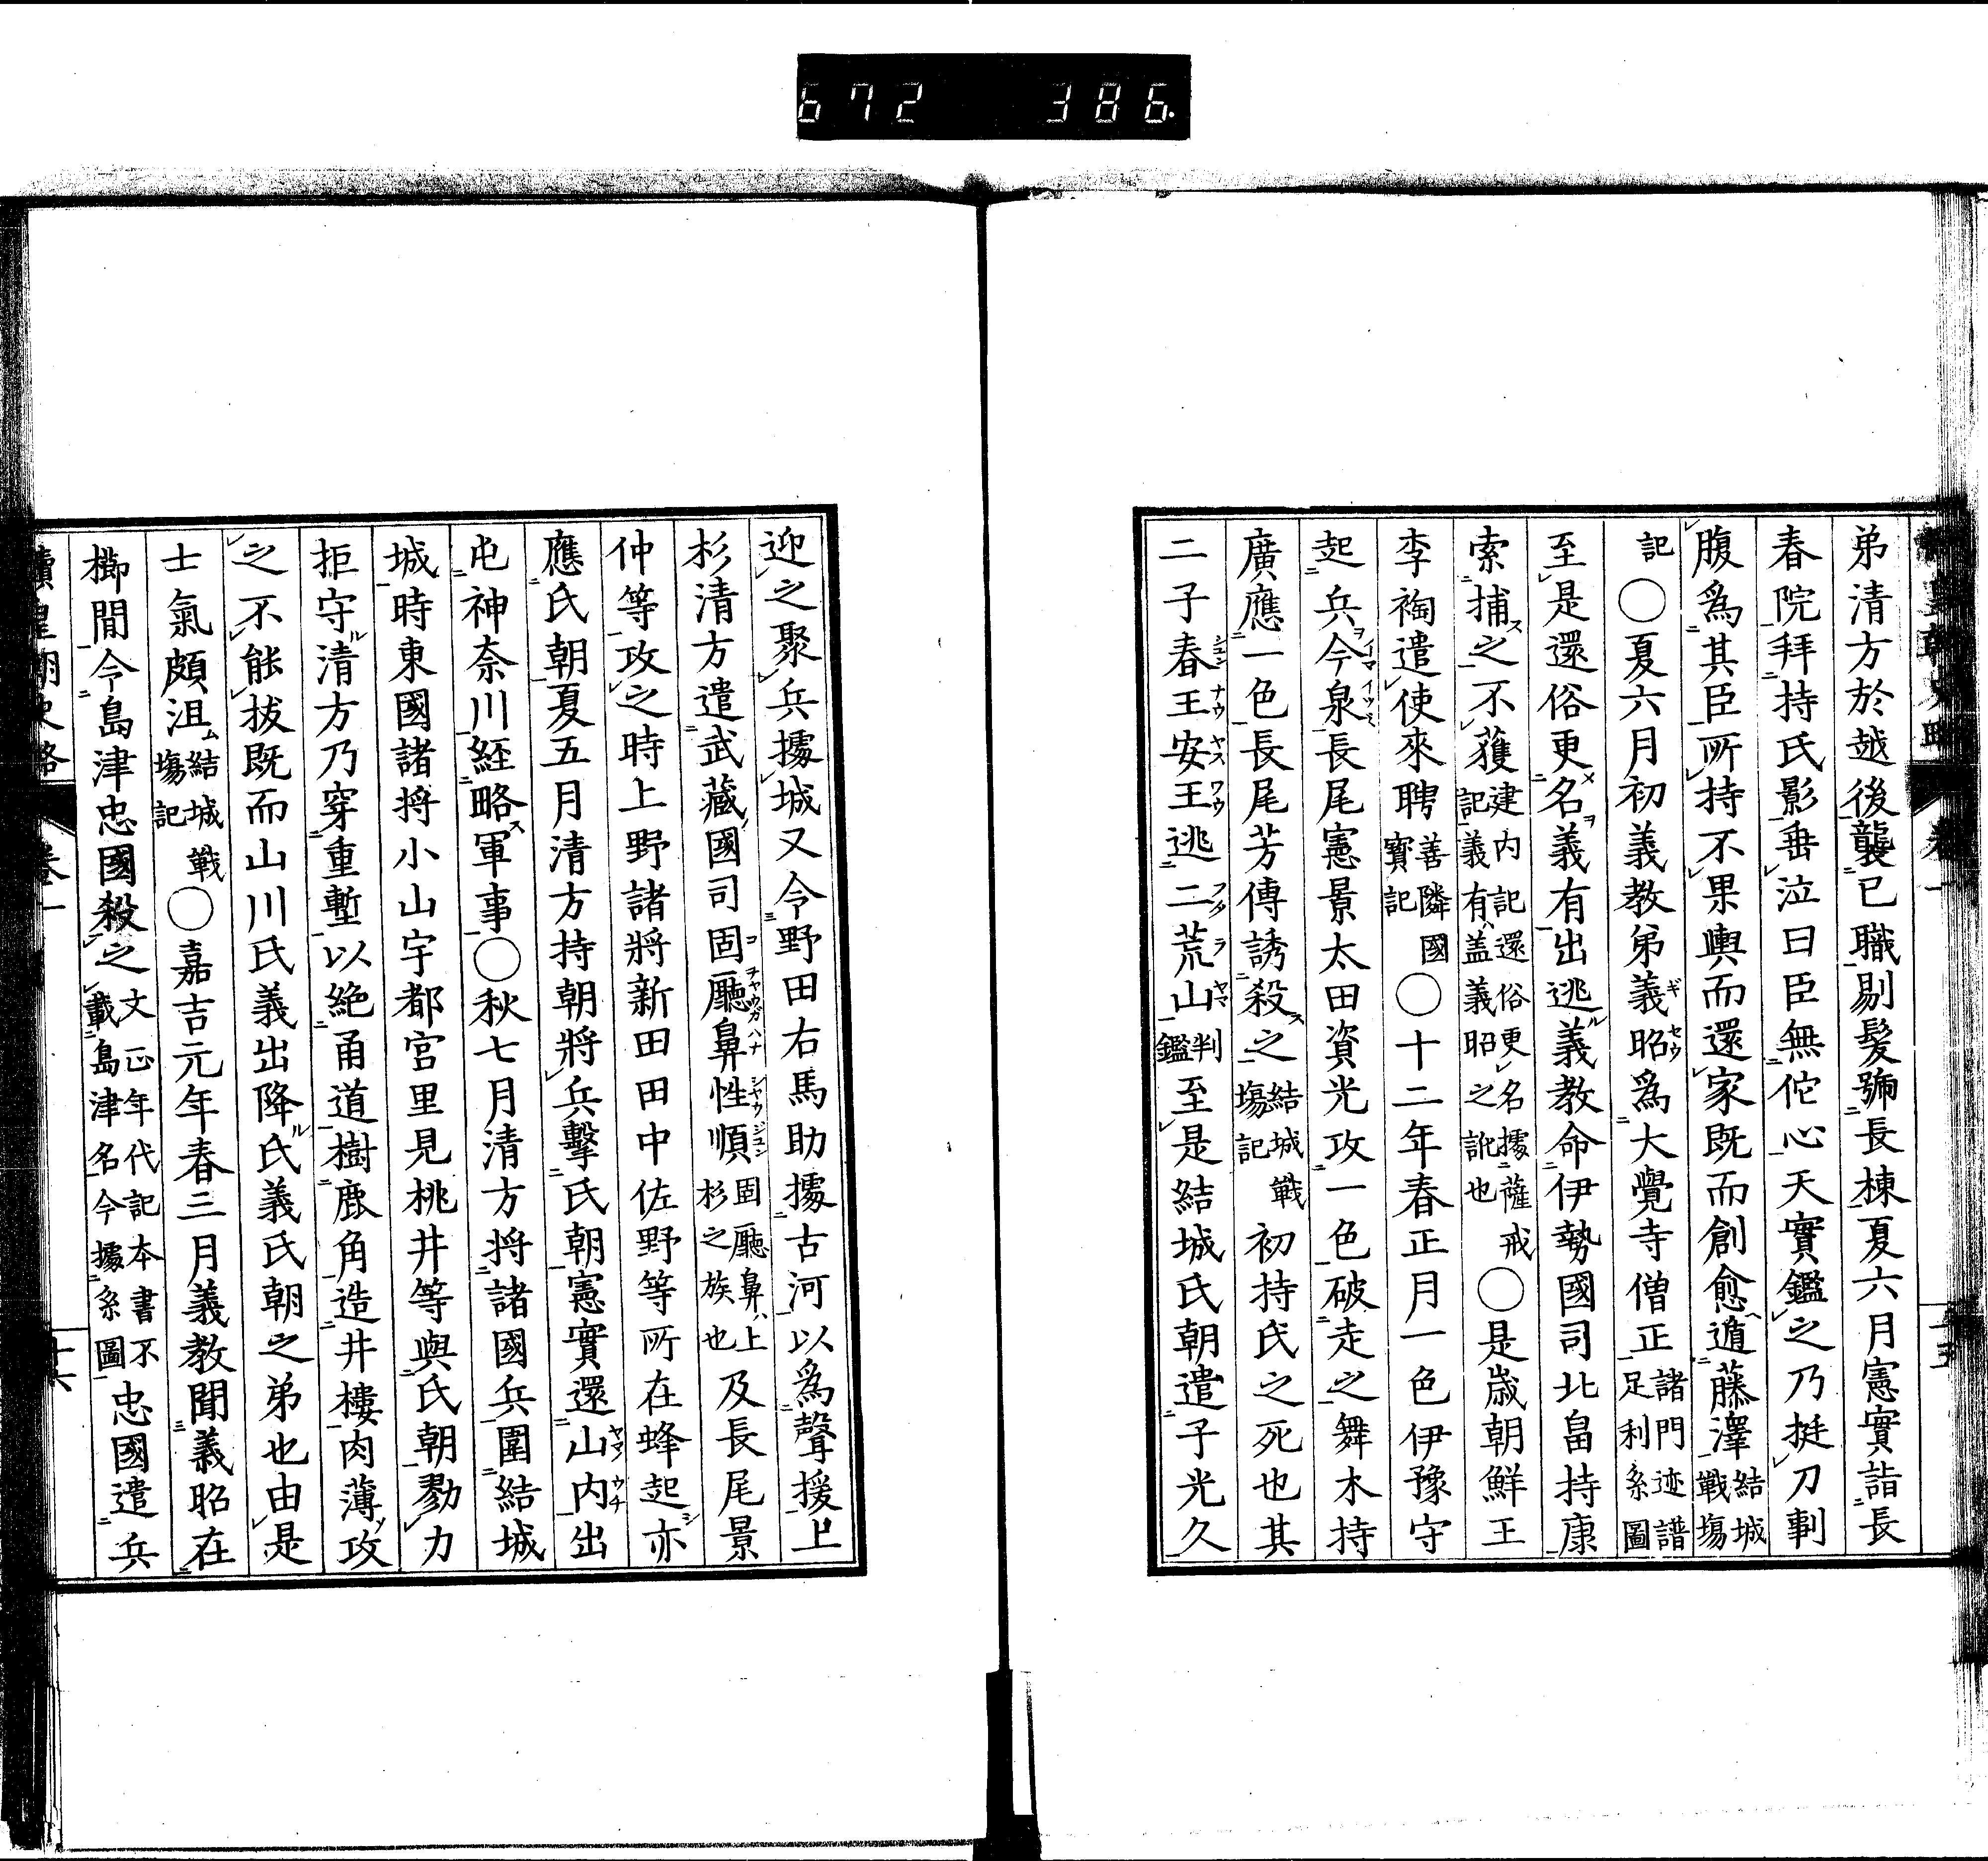 672 386
弟清方於越後襲已職剔髮號長棟夏六月憲實詣長
春院拜持氏影垂泣曰臣無佗心天實鑑之乃挺刀剚
腹爲其臣所持不果輿而還家既而創愈遁藤澤結城戰塲
記○夏六月初義教弟義昭爲大覺寺僧正諸門迹譜足利系圖
至是還俗更名義有出逃義教命伊勢國司北畠持康
索捕之不獲建内記還俗更名據薩戒記義有盖義昭之訛也○是歳朝鮮王
李裪遣使來聘善隣國寳記○十二年春正月一色伊豫守
起兵今泉長尾憲景太田資光攻一色破走之舞木持
廣應一色長尾芳傳誘殺之結城戰塲記初持氏之死也其
二子春王安王逃二荒山判鑑至是結城氏朝遣子光久
迎之聚兵據城又令野田右馬助據古河以爲聲援上
杉清方遣武藏國司固廳鼻性順固廳鼻上杉之族也及長尾景
仲等攻之時上野諸將新田田中佐野等所在蜂起亦
應氏朝夏五月清方持朝將兵擊氏朝憲實還山内出
屯神奈川経略軍事○秋七月清方将諸國兵圍結城
城時東國諸将小山宇都宮里見桃井等與氏朝勠力
拒守清方乃穿重塹以絶甬道樹鹿角造井樓肉薄攻
之不能拔既而山川氏義出降氏義氏朝之弟也由是
士氣頗沮結城戰塲記○嘉吉元年春三月義教聞義昭在
櫛間令島津忠國殺之文正年代記本書不載島津名今據系圖忠國遣兵
續皇朝史略 卷一 十六